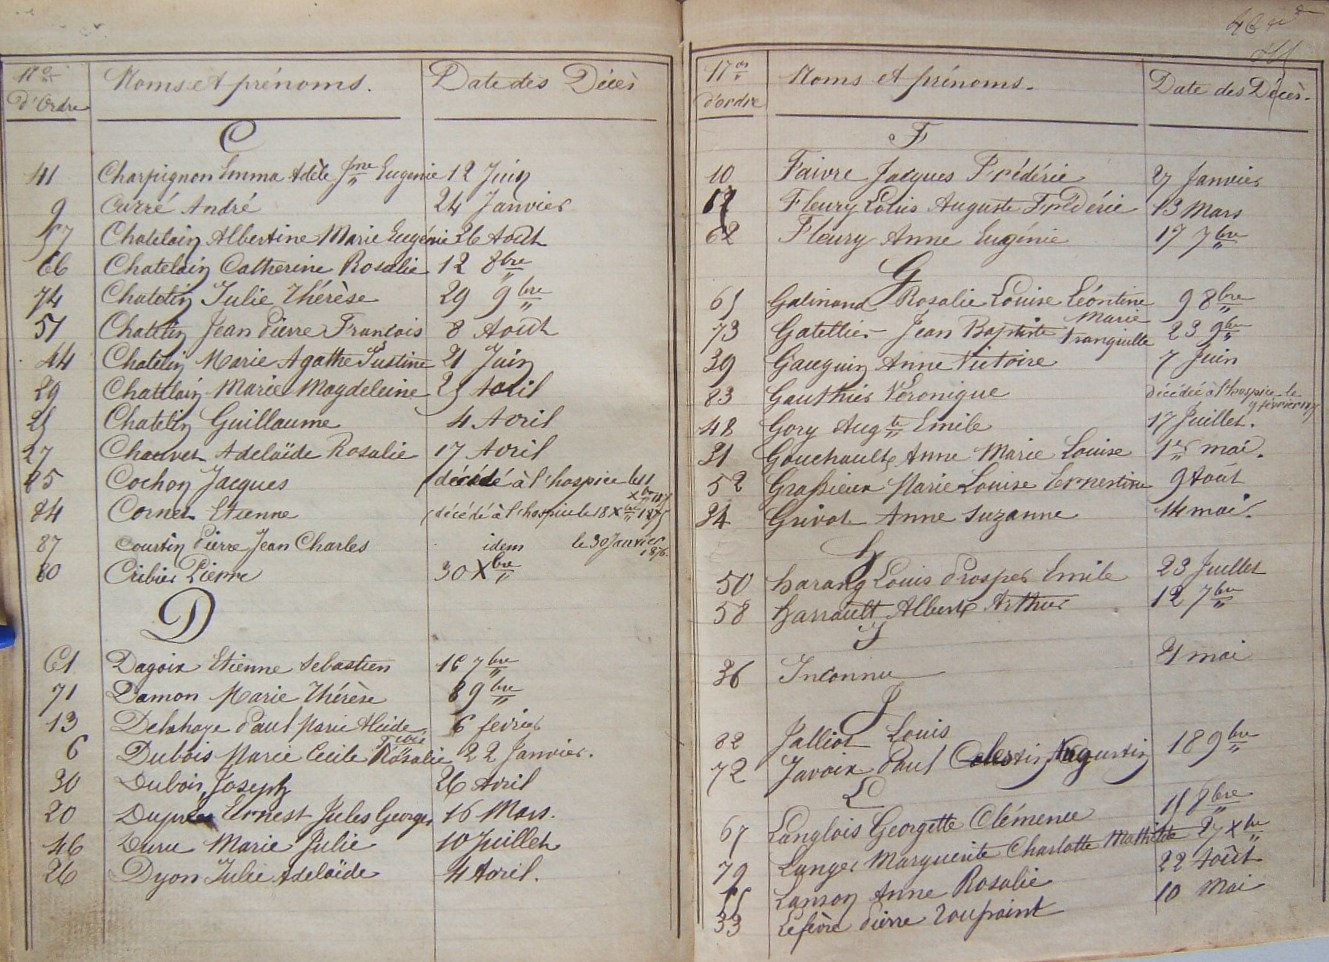 Nos d'Ordre Noms et prénoms. Date des Décès
C
41 Charpignon Emma Adèle Jne Eugenie 12 Juin
9 Carré André 24 Janvier
57 Chatelain Albertine Marie Eugenie 26 Août
66 Chatelain Catherine Rosalie 12 8bre
74 Chatelin Julie Thérèse 29 9bre
51 Chatelin Jean Pierre Francois 8 Août
44 Chatelin Marie Agathe Justine 21 Juin
29 Chatelain Marie Magdeleine 25 Avril
25 Chatelin Guillaume 4 Avril
27 Chauvet Adelaïde Rosalie 17 Avril
85 Cochon Jacques (décédé à l'hospice le
84 Cornet Etienne (décédé à l'hospice le 18 Xbre 1875
87 Courtin Pierre Jean Charles idem le 30 Janvier 1876
80 Cribier Pierre 30 Xbre
D
61 Dagoix Etienne Sebastien 16 7bre
71 Damon Marie Thérèse 8 9bre
13 Delahaye Paul Marie Alcide 6 fevrier
6 Dubois Marie Cecile Rosalie 22 Janvier.
30 Dubois Joseph 26 Avril
20 Ernest Jules Georges 16 Mars.
46 Duru Marie Julie 10 Juillet
26 Dyon Julie Adelaïde 4 Avril.
Nos d'ordre Noms et prénoms. Date des Décès.
F
10 Faivre Jacques Frédéric 27 Janvier
Fleury Louis Auguste Frédéric 13 Mars
62 Fleury Anne Eugénie 17 7bre
G
65 Galinand Rosalie Louise Léontine 9 8bre
73 Gatellier Jean Baptiste Marie Tranquille 23 9bre
39 Gauguin Anne Victoire 7 Juin
83 Gauthier Véronique décédée à l'hospice le 9 février
48 Gory Augte Emile 17 Juillet.
31 Gouchault Anne Marie Louise 1er mai.
52 Grassieux Marie Louise Ernestine 9 Août
34 Grivot Anne Suzanne 14 mai.
H
50 harang Louis Prosper Emile 23 Juillet
58 harrault Albert Arthur 12 7bre
I
36 Inconnu 21 mai
J
82 Jalliot Louis
72 Javoix Paul Augustin 18 9bre
L
67 Langlois Georgette Clémence 15 8bre
79 Langer Marguerite Charlotte Mathilde 27 Xbre
55 Lanson Anne Rosalie 22 Août
33 Lefèvre Pierre Toussaint 10 Mai